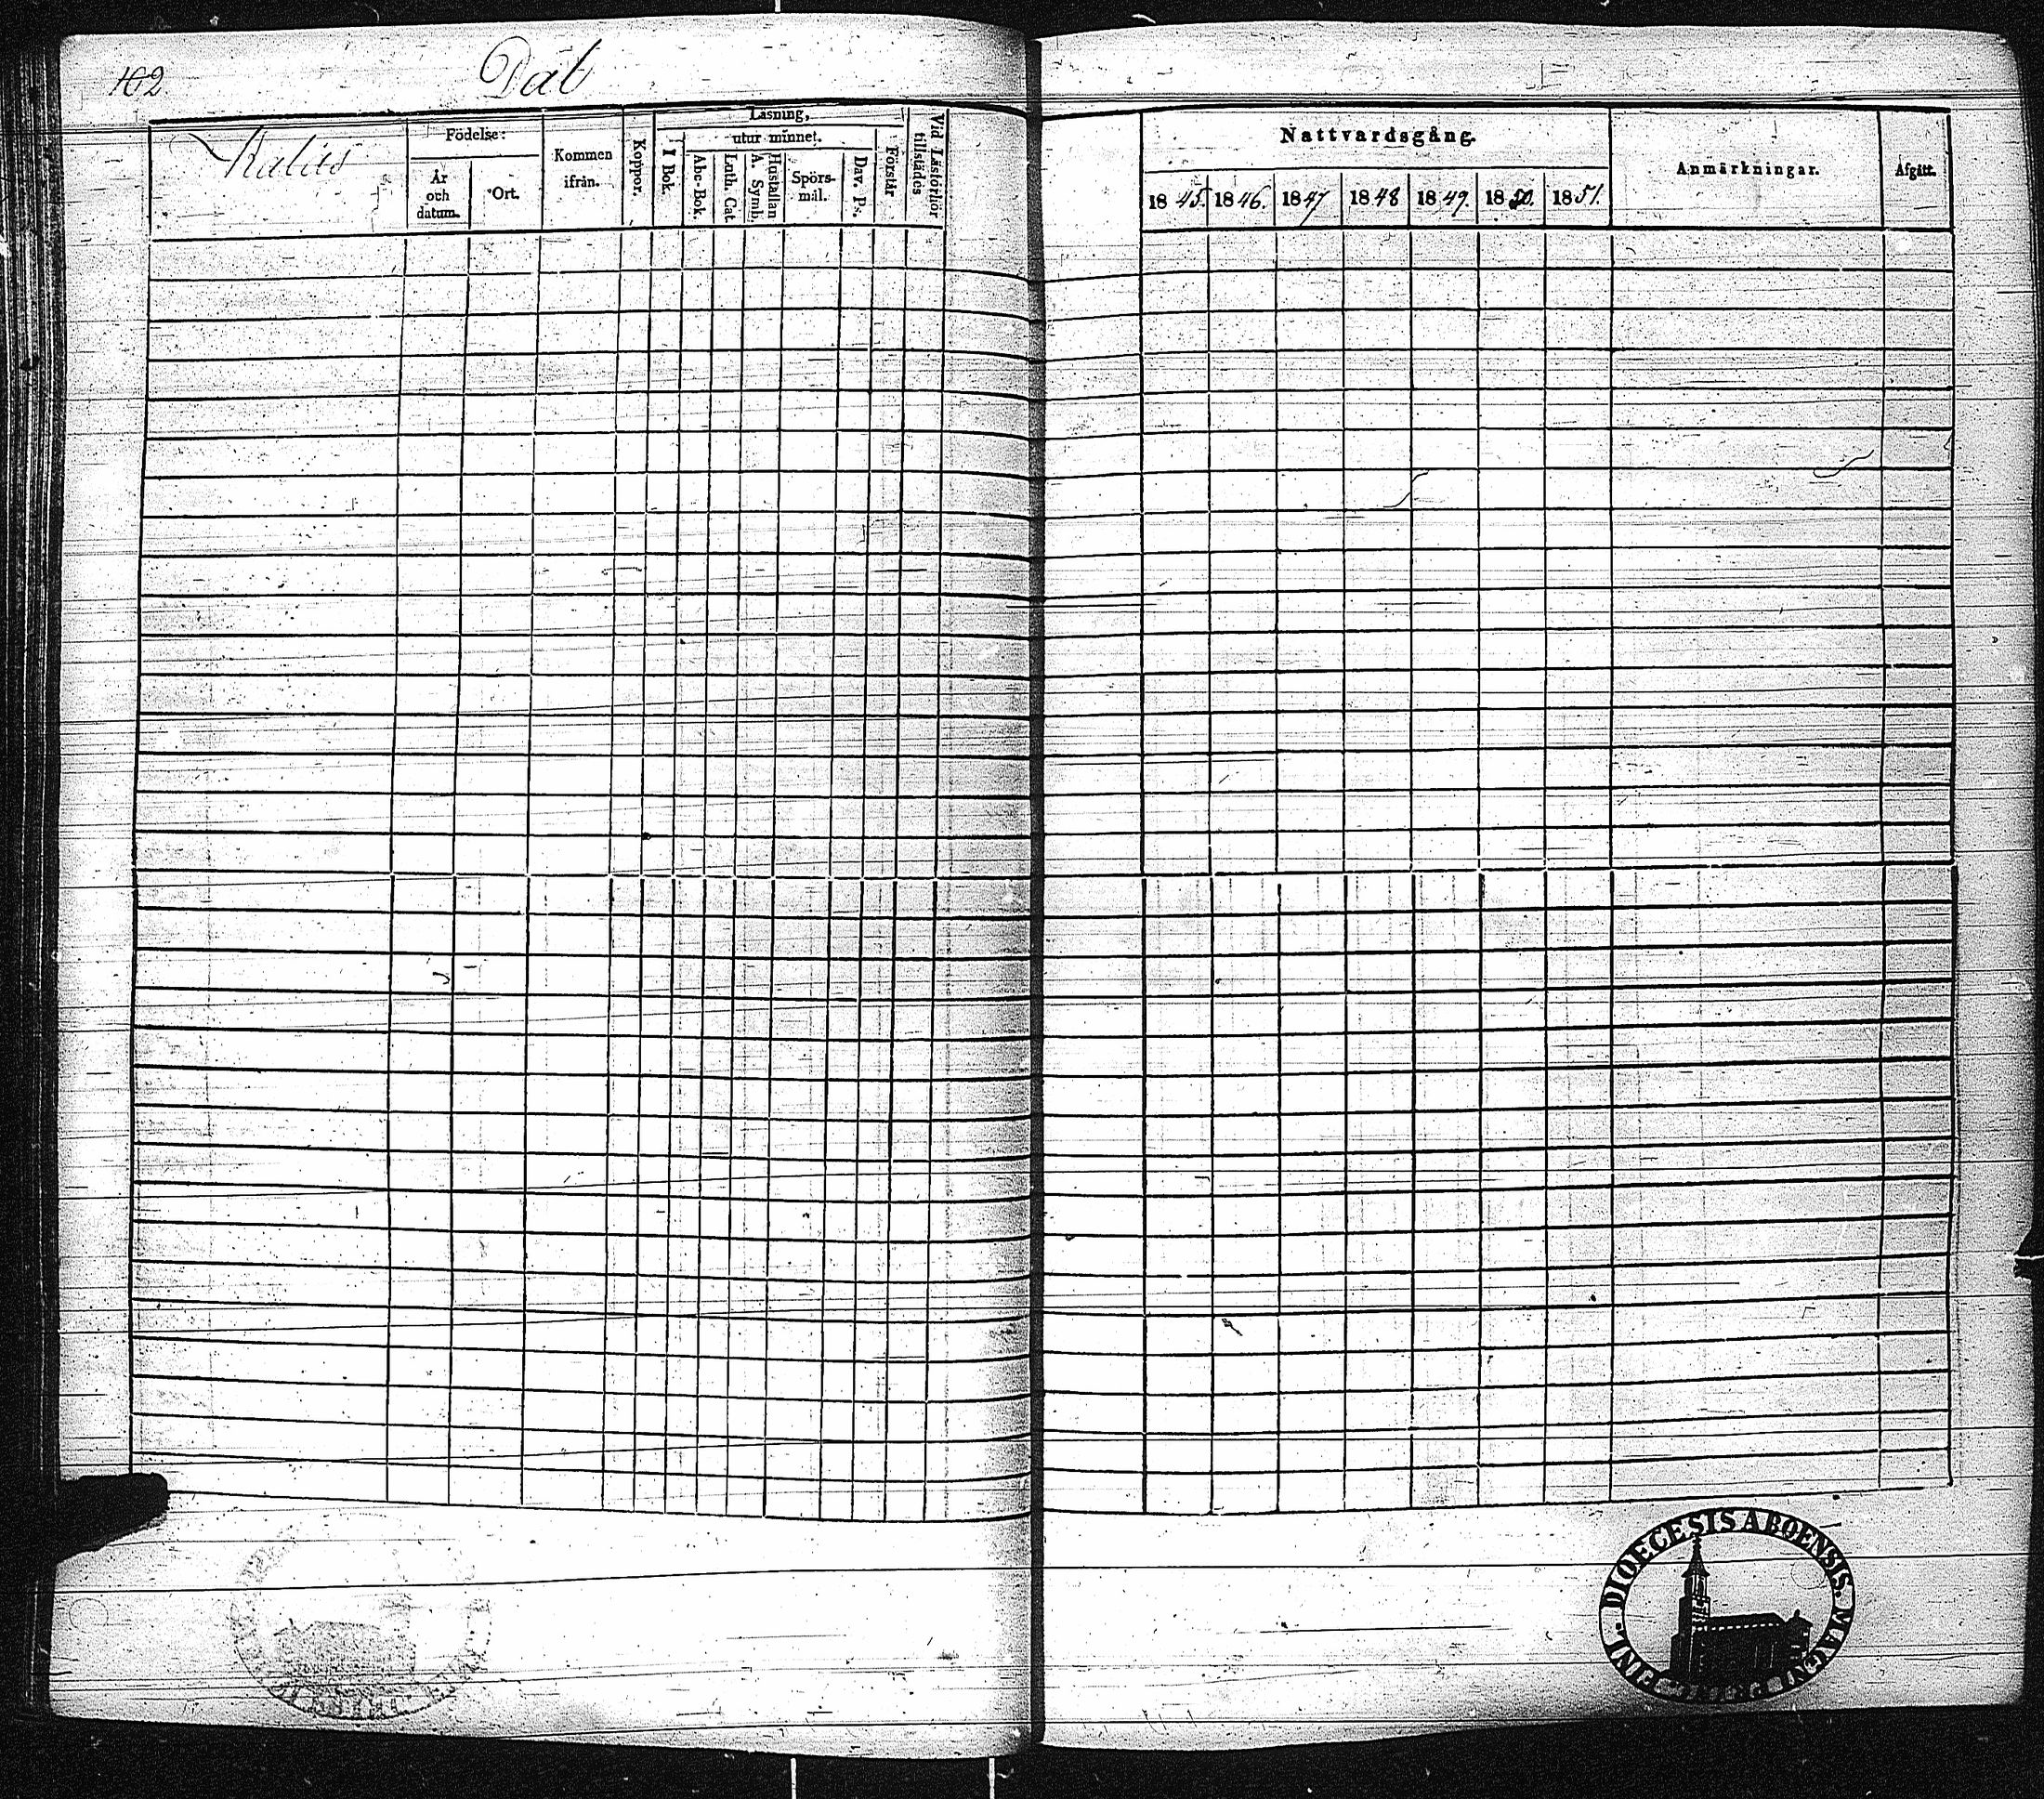 102
Dal
Födelse:
År och datum.
Ort.
Kommen ifrån.
Koppor.
Läsning,
I Bok.
utur minnet.
Abc-Bok.
Luth. Cat.
Hustaflan A. Symb.
Spörs-mål.
Dav. Ps.
Förstår
Vid Läsförhör tillstädes
Nattvardsgång.
1845. 1846. 1847 1848 1849. 1850. 1851.
Anmärkningar.
Afgått.
DIOECESIS ABOENSIS. MAGNI PRINC. FINL.